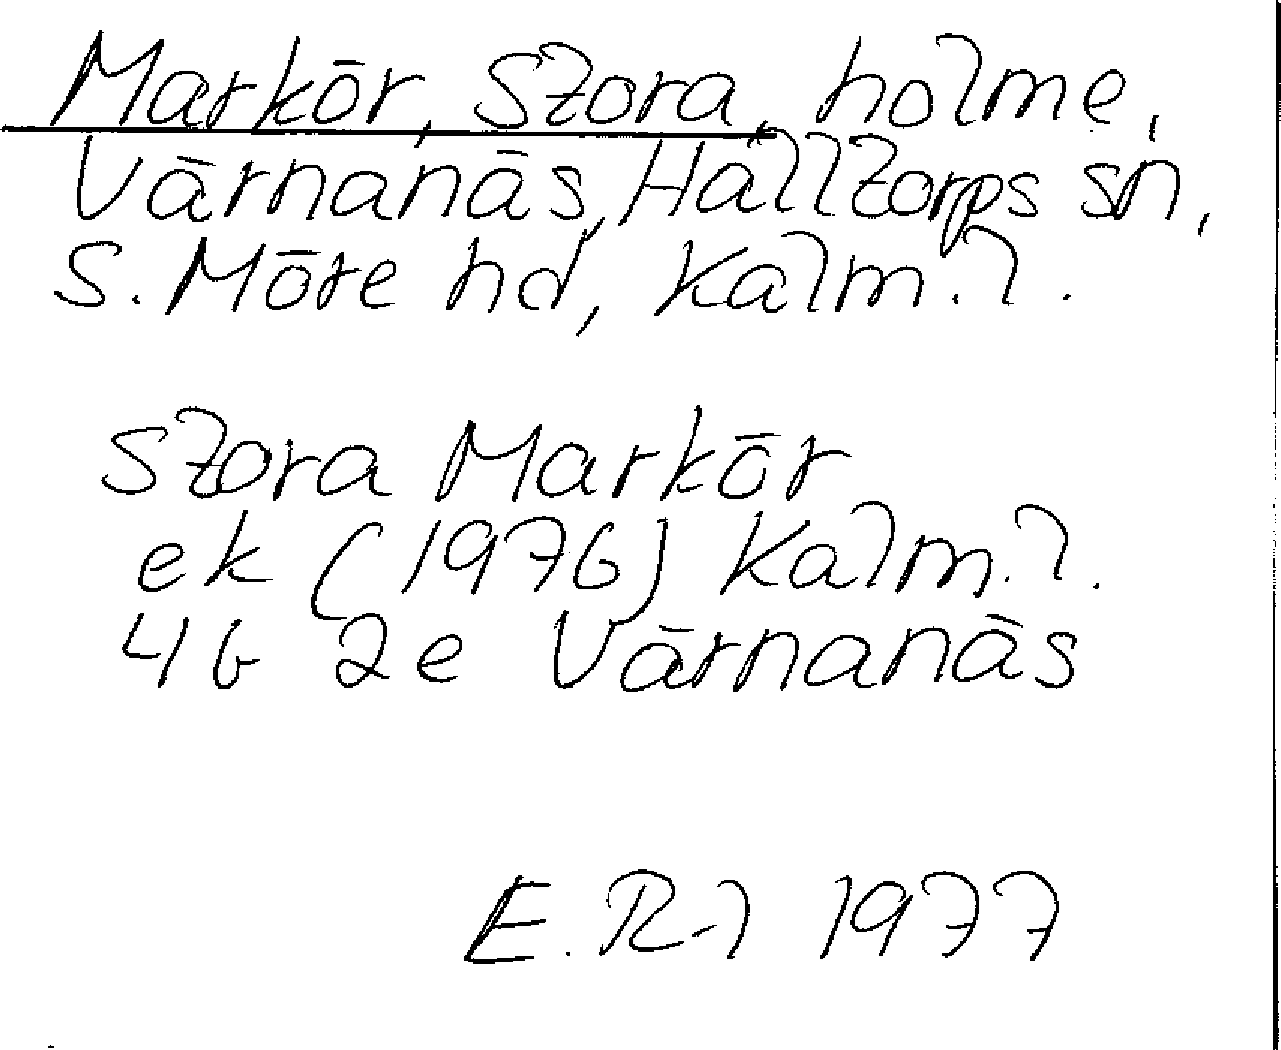 Markör, Stora, holme,
Värnanäs, Halltorps sn,
S. Möre hd, Kalm. l.
Stora Markör
ek (1976) Kalm. l.
4G 2e Värnanäs
E. R-l 1977